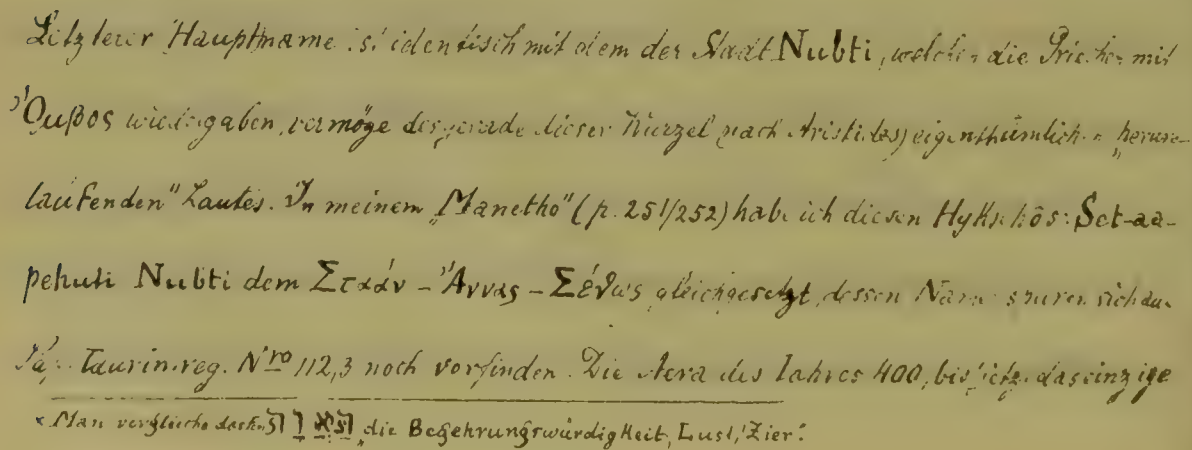 Letzterer Hauptname ist identisch mit dem der Stadt Nubti, welchen die Griechen mit
Ὄμβος wiedergaben, vermöge des gerade dieser Wurzel (nach Aristides) eigenthümlichen „herum-
laufenden" Lautes. In meinem „Manetho" (p. 251/252) habe ich diesen Hykschôs: Set-aa-
pehuti Nubti dem Σταάν - Ἄννας - Σέθως gleichgesetzt, dessen Namensspuren sich au
Pap. Taurin. reg. Nro 112,3 noch vorfinden. Die Aera des Jahres 400, bis jetzt das einzige
× Man vergleiche die Begehrungswürdigkeit, Lust, Zier.